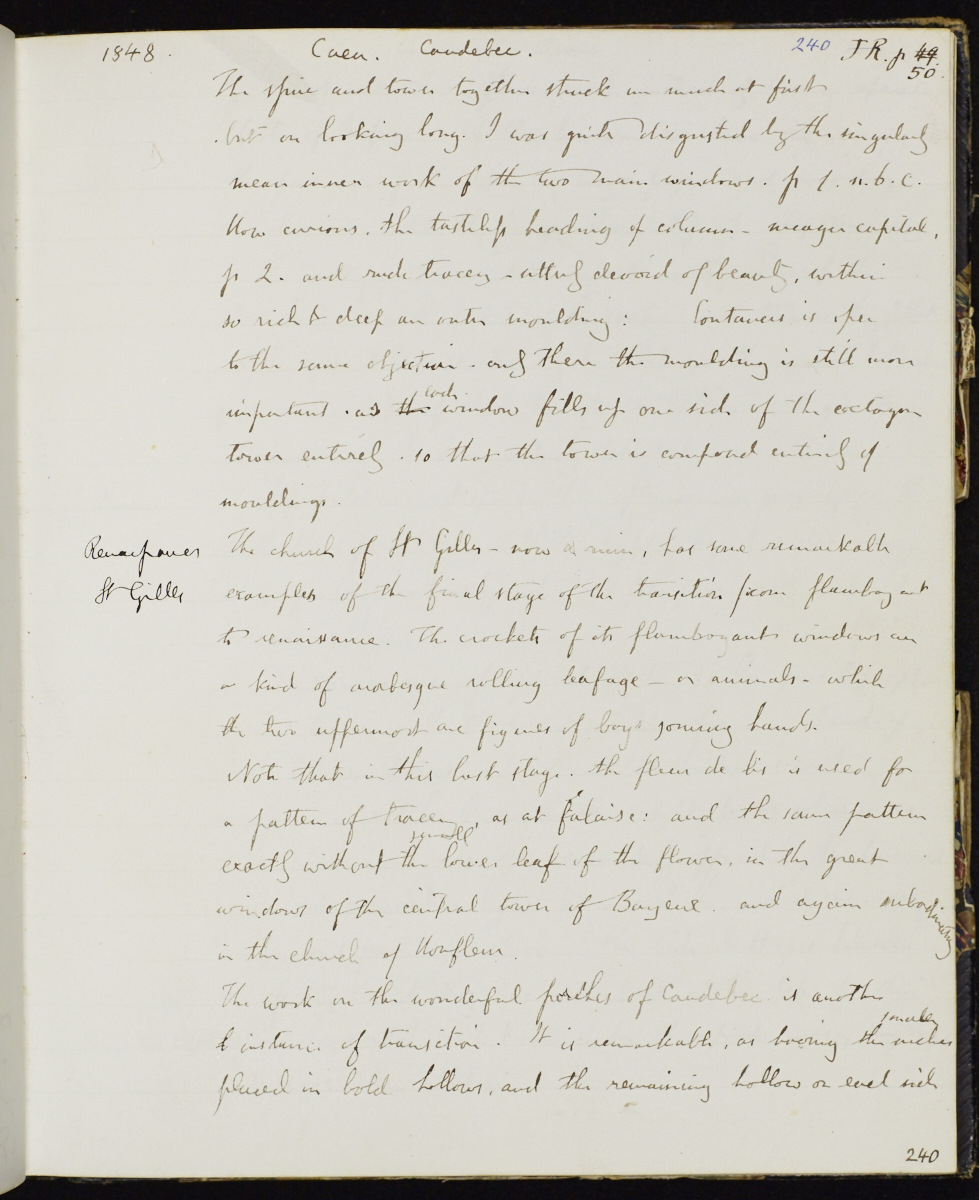 1848. Caen. Caudebec. 240 J R. p 49.
50.
The spire and tower together struck me much at first
but on looking long. I was quite disgusted by the singularly
mean inner work of the two main windows. p 1. n. b. c.
How curious. the tasteless heading of column - meagre capital,
p 2. and rude tracery - utterly devoid of beauty, within
so rich & deep an outer moulding: Coutances is open
to the same objection - only there the moulding is still more
important . as the each window fills up one side of the octagon
tower entirely . so that the tower is composed entirely of
mouldings.
Renaissance The church of St Gilles - now a ruin, has some remarkable
St Gilles examples of the final stage of the transition from flamboyant
to renaissance. The crockets of its flamboyant windows are
a kind of arabesque rolling leafage - or animals - which
the two uppermost are figures of boys joining hands.
Note that in this last stage. the fleur de lis is used for
a pattern of tracery, as at Falaise: and the same pattern
exactly without the small lower leaf of the flower, in the great
windows of the central tower of Bayeux. and again subordinately
in the church of Honfleur.
The work on the wonderful porches of Caudebec is another
instance of transition. It is remarkable, as having the smaller niches
placed in bold hollows, and the remaining hollow on each side
240